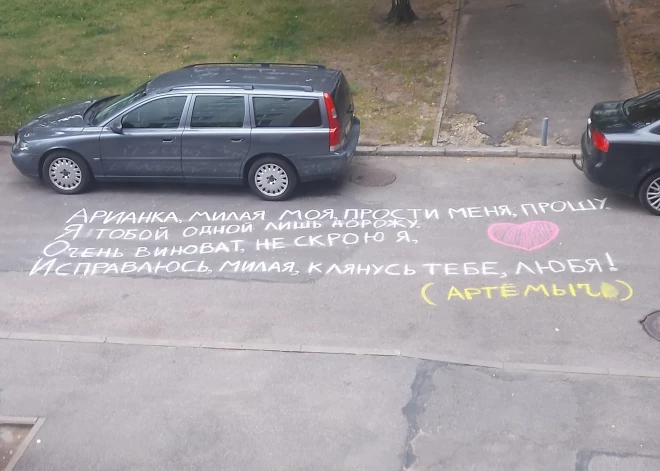 Арианка, милая моя, прости меня, прошу.
Я тобой одной лишь дорожу.
Очень виноват, не скрою я,
Исправлюсь, милая, клянусь тебе, любя!
(Артёмыч)